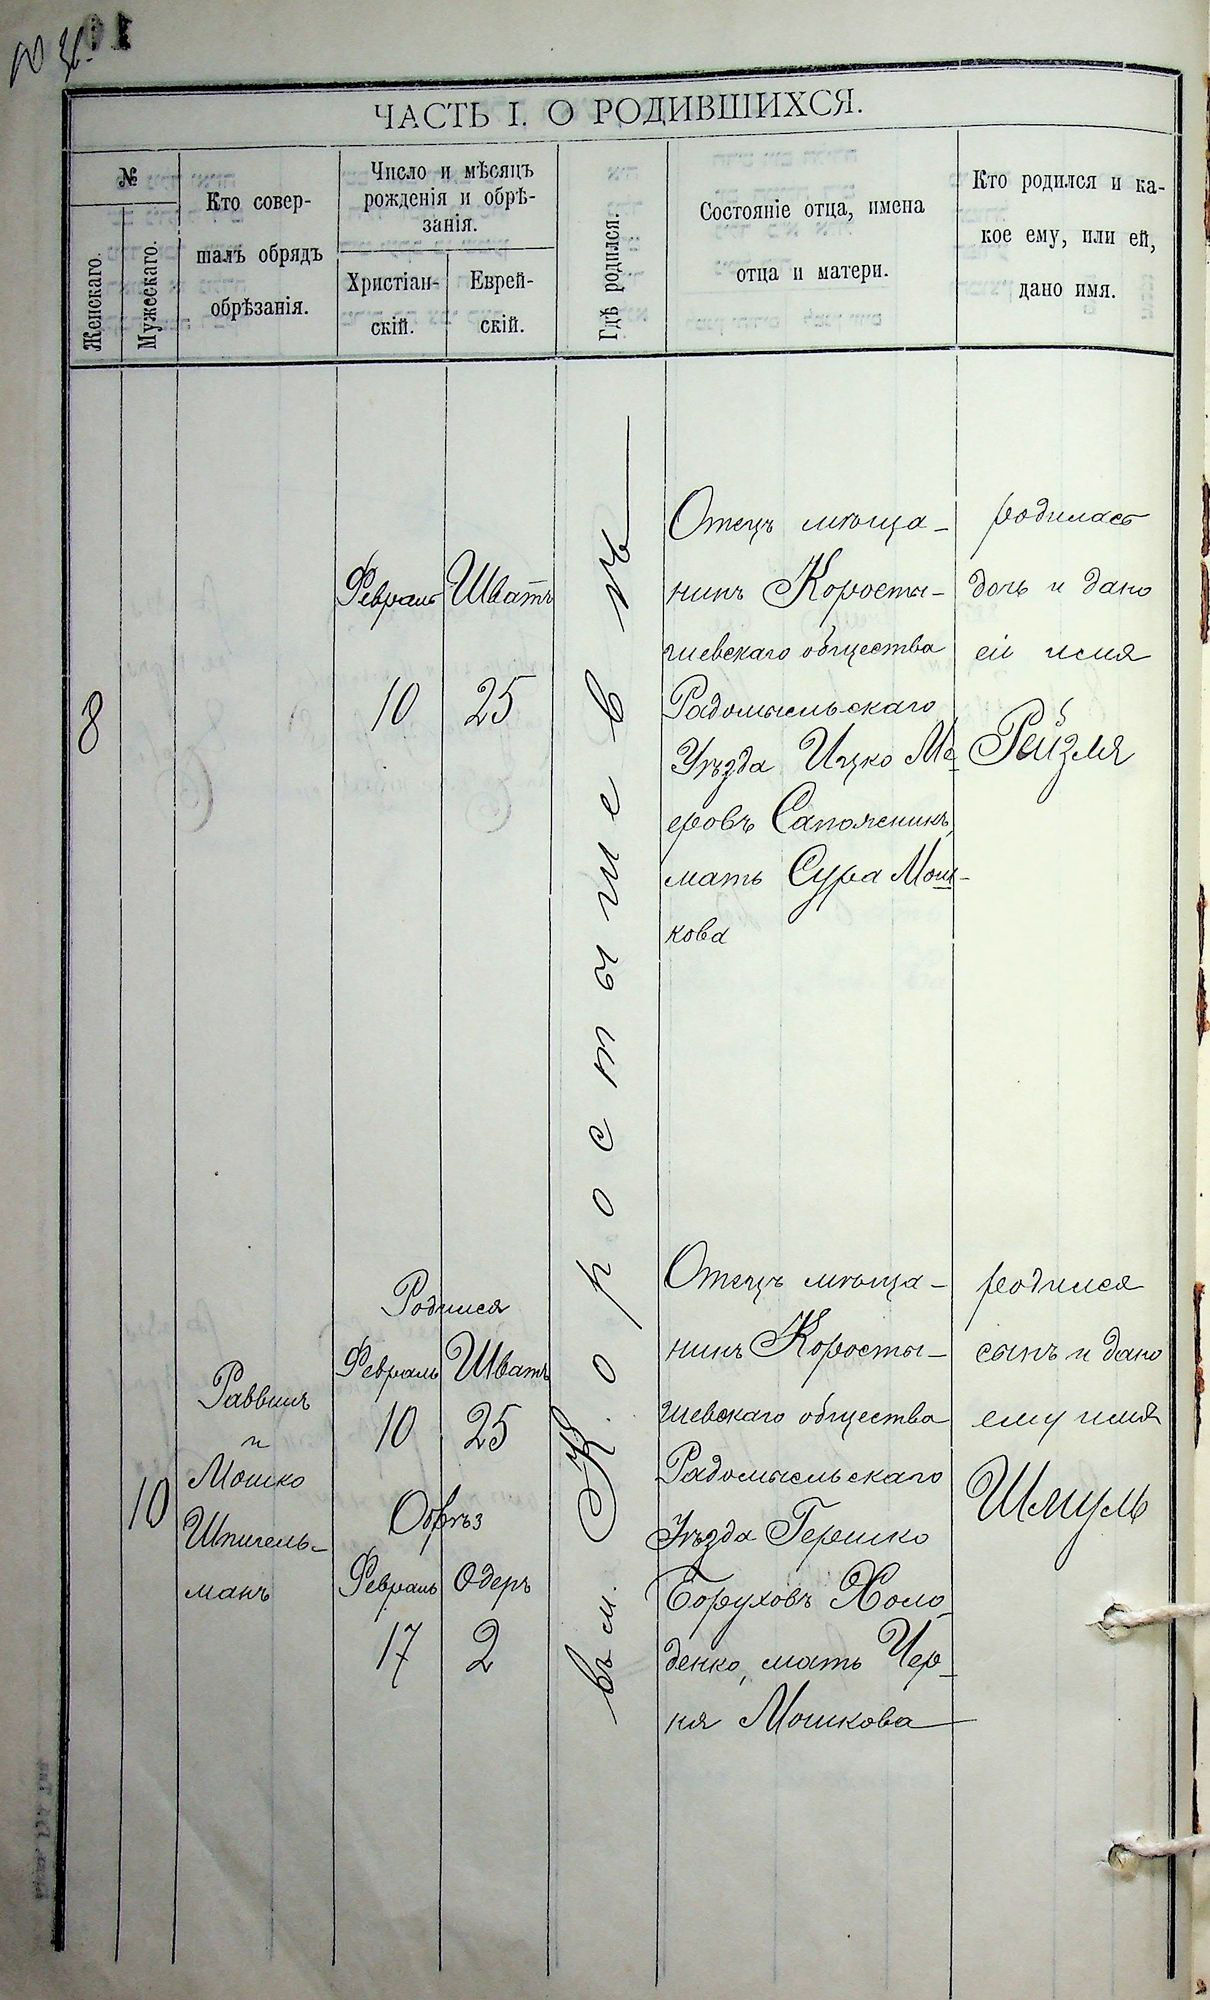 № 36.
ЧАСТЬ I. О РОДИВШИХСЯ.
№
Женскаго.
Мужескаго.
Кто совер-
шалъ обрядъ
обрѣзанія.
Число и мѣсяцъ
рожденія и обрѣ-
занія.
Христіан-
скій.
Еврей-
скій.
Гдѣ родился.
Состояніе отца, имена
отца и матери.
Кто родился и ка-
кое ему, или ей,
дано имя.
8
Февраль
10
Шватъ
25
въ м. Коростышевѣ
Отецъ мѣща-
нинъ Коросты-
шевскаго общества
Радомысльскаго
Уѣзда Ицко Ме-
еровъ Сапожникъ,
мать Сура Мош-
кова
родилась
дочь и дано
ей имя
Рейзля
10
Раввинъ
и
Мошко
Шпигель-
манъ
Родился
Февраль Шватъ
10 25
Обрѣз
Февраль Одеръ
17 2
Отецъ мѣща-
нинъ Коросты-
шевскаго общества
Радомысльскаго
Уѣзда Гершко
Боруховъ Холо-
денко, мать Чер-
ня Мошкова
родился
сынъ и дано
ему имя
Шмуль